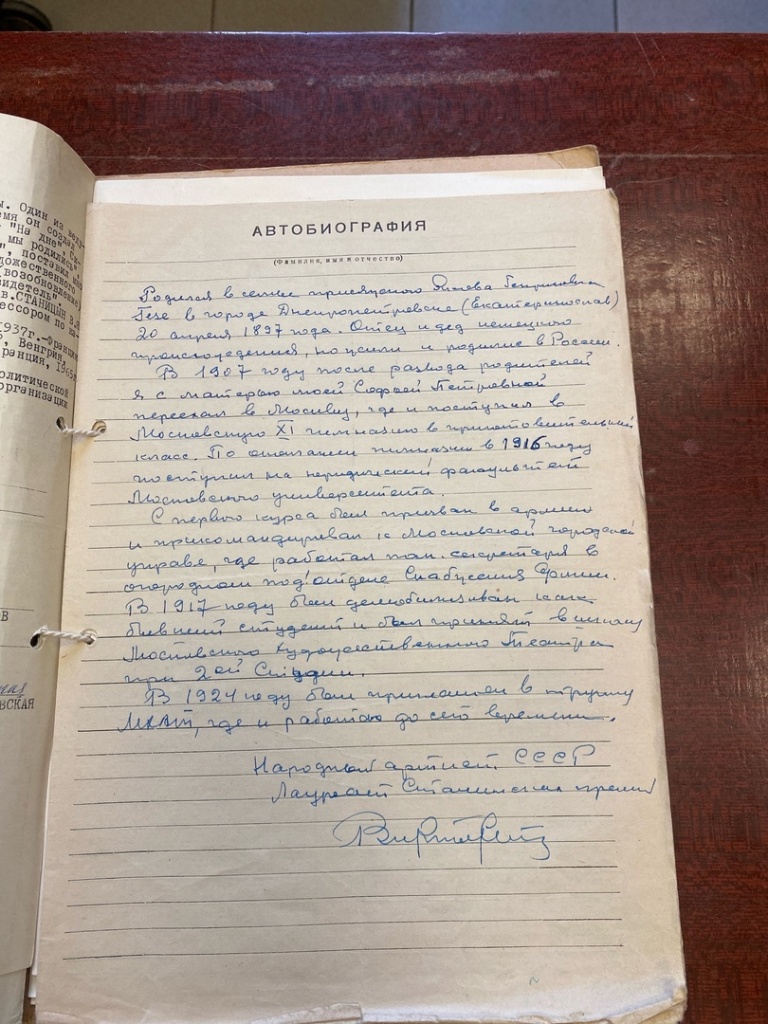 ы. Один из вед-
емя он создал
"На дне", Си-
мы родились
", поставил
дожественного
возобновлению
видетель".
в. СТАНИЦЫН В.Я
ессором по ка-
1937г.-Франция
Венгрия,
ранция, 1965г.
политической
организации
ОВ
ВСКАЯ
АВТОБИОГРАФИЯ
(Фамилия, имя и отчество)
Родился в семье присяжного Генриховича
Гезе в городе Днепропетровске (Екатеринослав)
20 апреля 1897 года. Отец и дед немецкого
происхождения, но жили и родились в России.
В 1907 году после развода родителей
я с матерью моей Софьей Петровной
переехал в Москву, где и поступил в
Московскую XI гимназию в приготовительный
класс. По окончании гимназии в 1916 году
поступил на юридический факультет
Московского университета.
С первого курса был призван в армию
и прикомандирован к Московской городской
управе, где работал пом. секретаря в
огородном под'отделе Снабжения Армии.
В 1917 году был демобилизован как
бывший студент и был принят в школу
Московского Художественного Театра
при 2ой Студии.
В 1924 году был приглашен в труппу
МХАТ, где и работаю до сего времени.
Народный артист СССР
Лауреат Сталинских премий